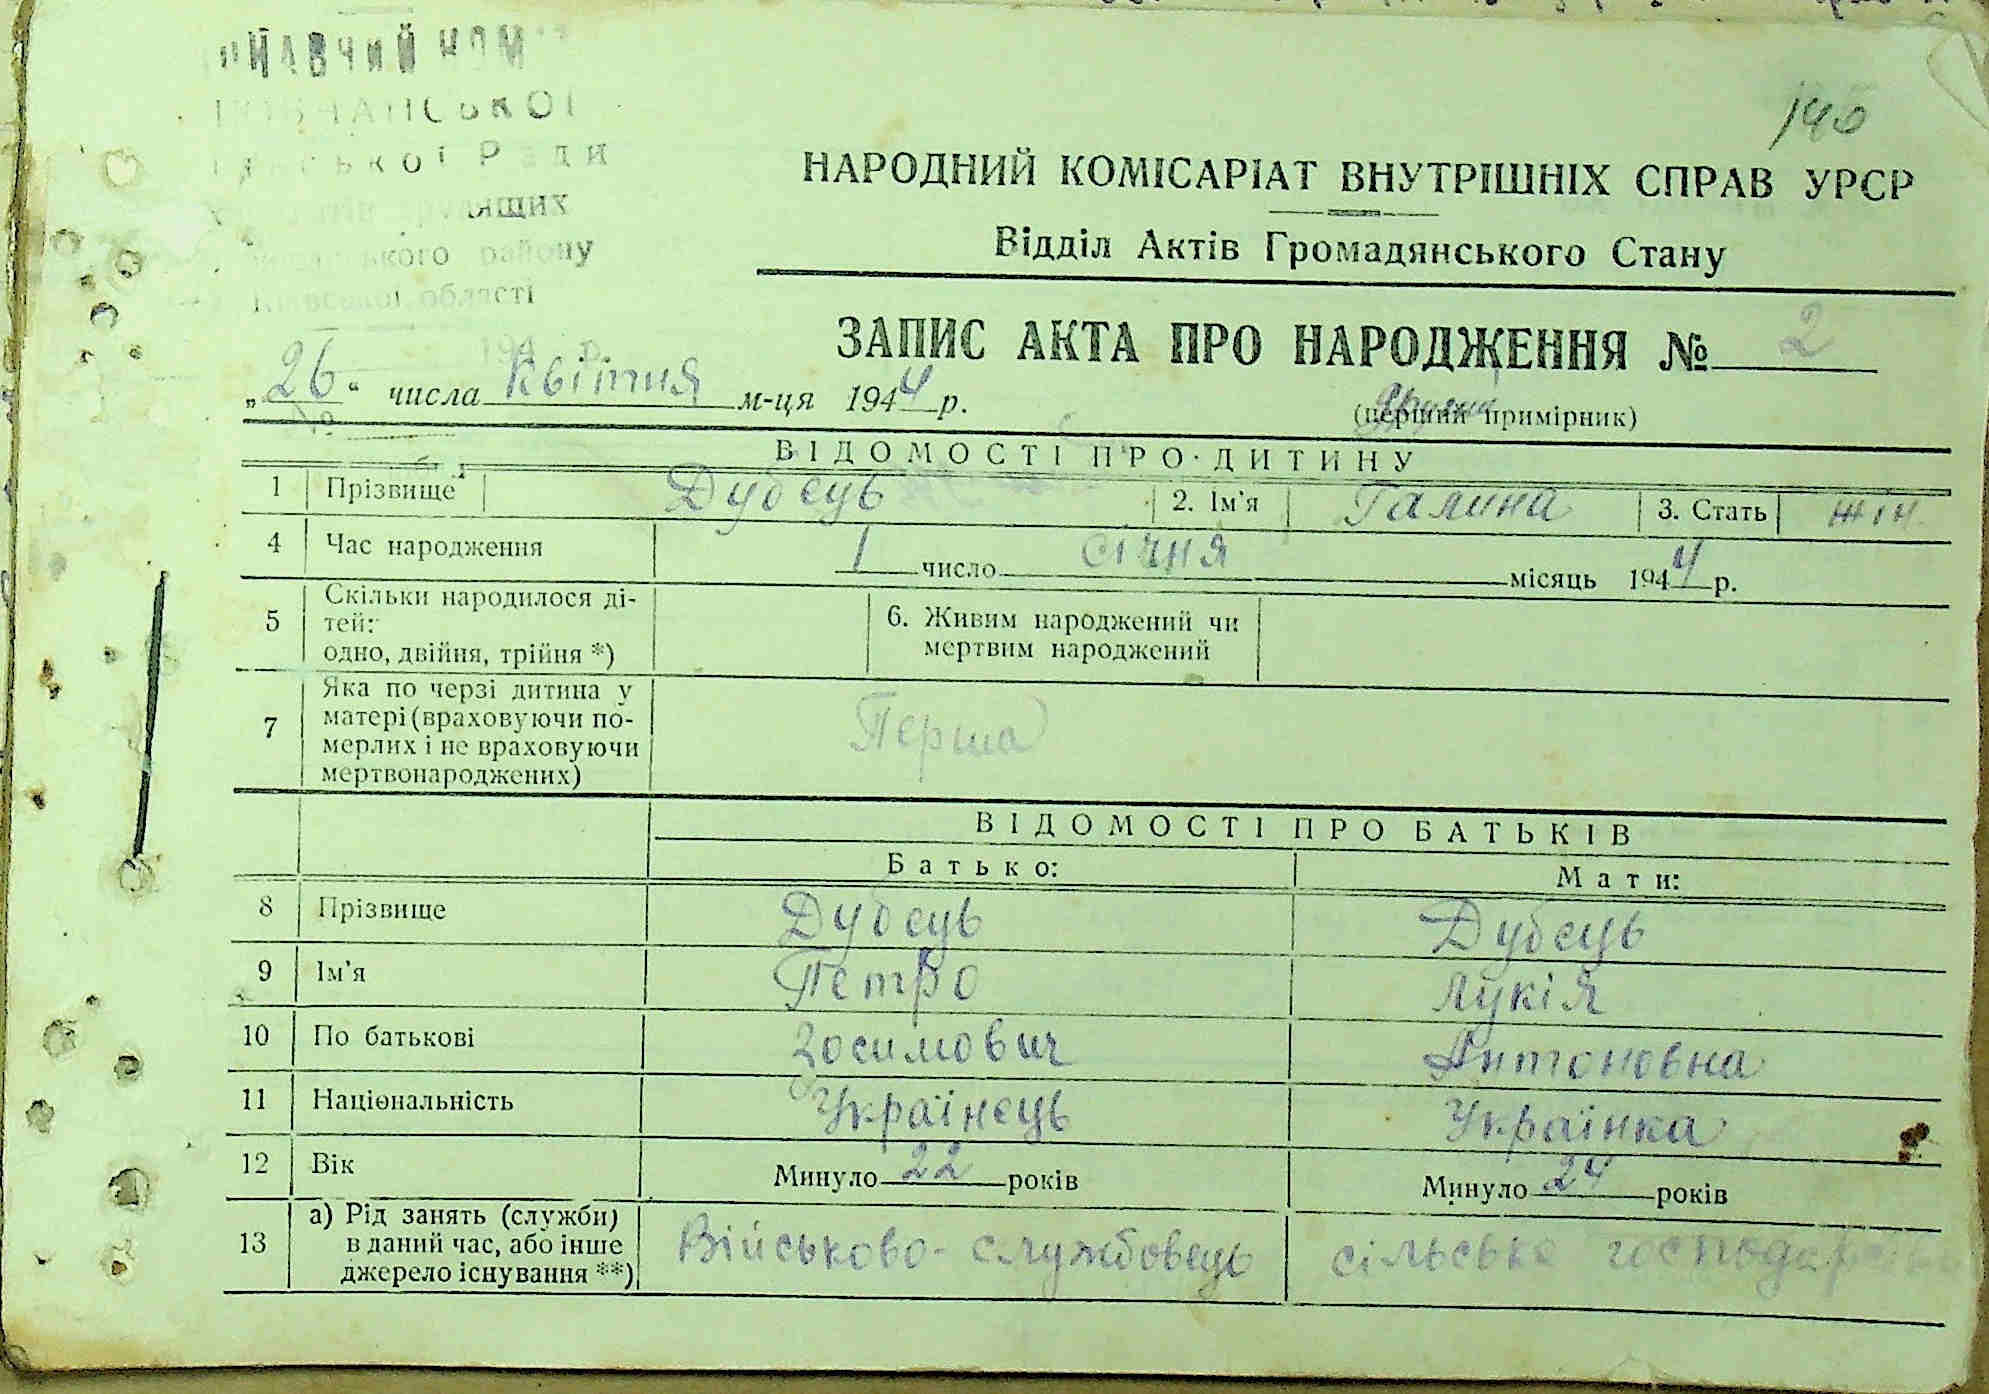 140
НАРОДНИЙ КОМІСАРІАТ ВНУТРІШНІХ СПРАВ УРСР
Відділ Актів Громадянського Стану
ської Ради
району
Київської області
194 р.
ЗАПИС АКТА ПРО НАРОДЖЕННЯ № 2
„26“ числа Квітня м-ця 1944 р.
(перший примірник)
ВІДОМОСТІ ПРО ДИТИНУ
1 Прізвище Дубець 2. Ім'я Галина 3. Стать жін.
4 Час народження 1 число січня місяць 1944 р.
5 Скільки народилося ді-
тей:
одно, двійня, трійня *)
6. Живим народжений чи
мертвим народжений
7 Яка по черзі дитина у
матері (враховуючи по-
мерлих і не враховуючи
мертвонароджених)
Перша
ВІДОМОСТІ ПРО БАТЬКІВ
Батько: Мати:
8 Прізвище Дубець Дубець
9 Ім'я Петро Лукія
10 По батькові Зосимович Антоновна
11 Національність Українець Українка
12 Вік Минуло 22 років Минуло 24 років
13 а) Рід занять (служби)
в даний час, або інше
джерело існування **)
Військово-службовець сільське господарство